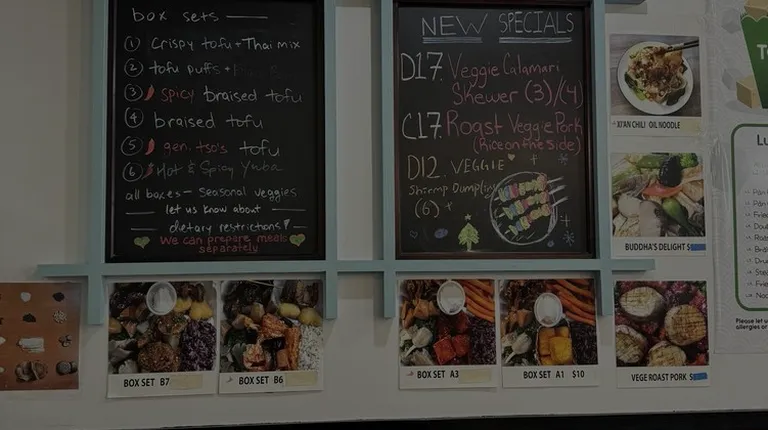 box sets
① Crispy tofu + Thai mix
② tofu puffs +
③ Spicy braised tofu
④ braised tofu
⑤ gen. tso's tofu
⑥ Hot & Spicy Yuba
all boxes - seasonal veggies
let us know about
dietary restrictions!
We can prepare meals
separately
NEW SPECIALS
D17. Veggie Calamari
Skewer (3)/(4)
C17. Roast Veggie Pork
(Rice on the side)
D12. VEGGIE
Shrimp Dumplings
(6)
XI'AN CHILI OIL NOODLE
BUDDHA'S DELIGHT $
VEGE ROAST PORK $
BOX SET B7
BOX SET B6
BOX SET A3
BOX SET A1 $10
Please let u
allergies or